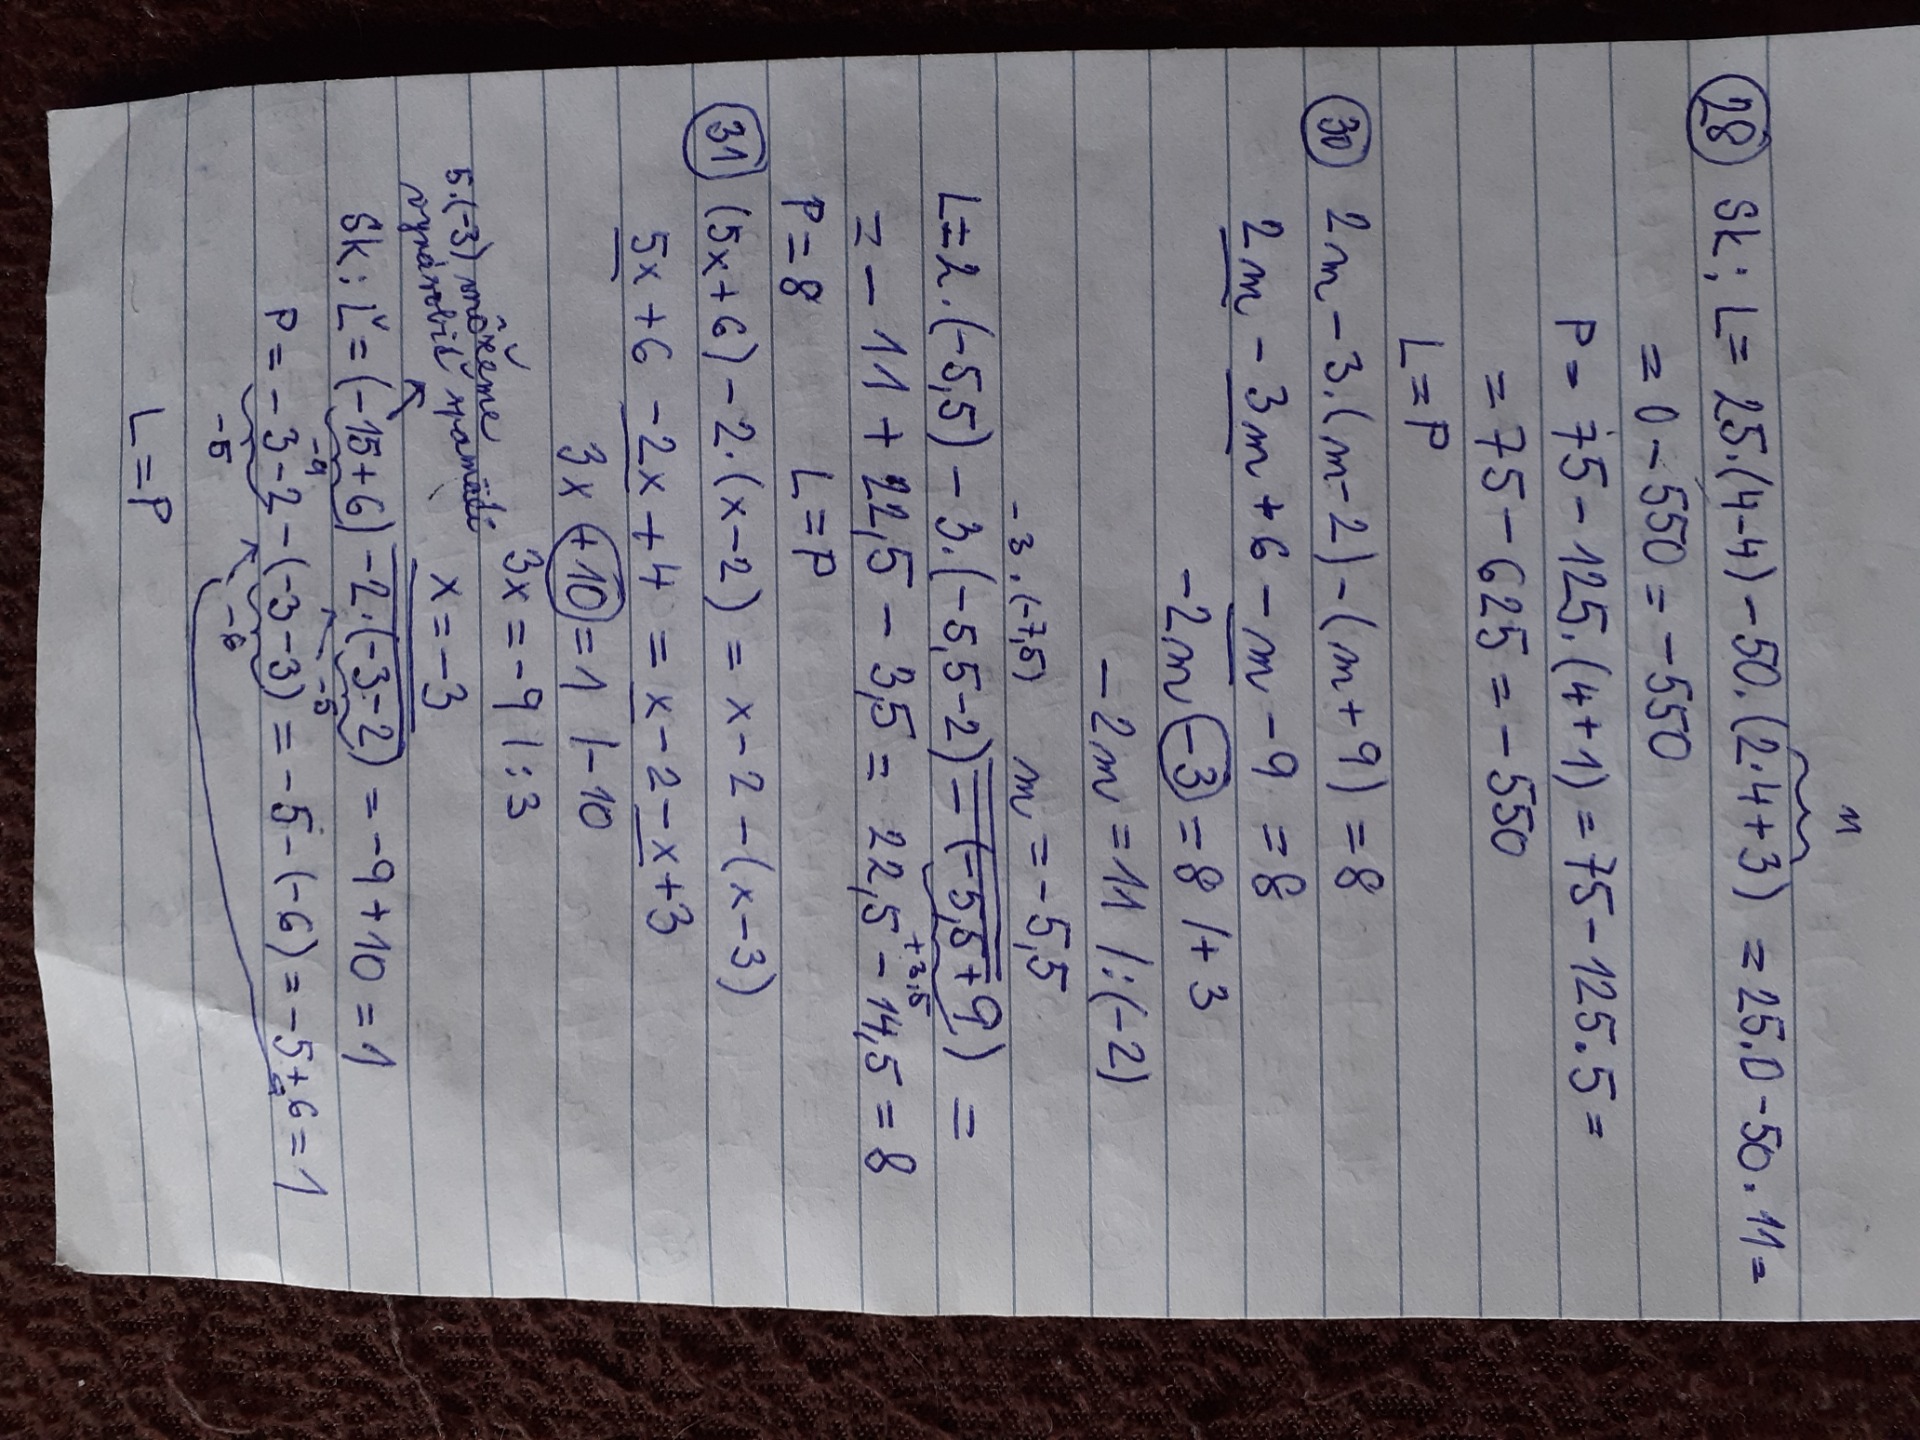 28 Sk: L = 25.(4-4) - 50.(2.4+3) = 25.0 - 50.11 =
11
= 0 - 550 = -550
P = 75 - 125.(4+1) = 75 - 125.5 =
= 75 - 625 = -550
L = P
30 2m - 3.(m-2) - (m+9) = 8
2m - 3m + 6 - m - 9 = 8
-2m - 3 = 8 /+3
-2m = 11 /:(-2)
-3.(-7,5) m = -5,5
L = 2.(-5,5) - 3.(-5,5-2) - (-5,5+9) =
+3,5
= -11 + 22,5 - 3,5 = 22,5 - 14,5 = 8
P = 8 L = P
31 (5x+6) - 2.(x-2) = x - 2 - (x-3)
5x + 6 - 2x + 4 = x - 2 - x + 3
3x + 10 = 1 /-10
3x = -9 /:3
5.(-3) môžeme
vynásobiť spamäti
x = -3
Sk: Ľ = (-15+6) - 2.(-3-2) = -9 + 10 = 1
-9 -5
P = -3 - 2 - (-3-3) = -5 - (-6) = -5 + 6 = 1
-5 -6
L = P